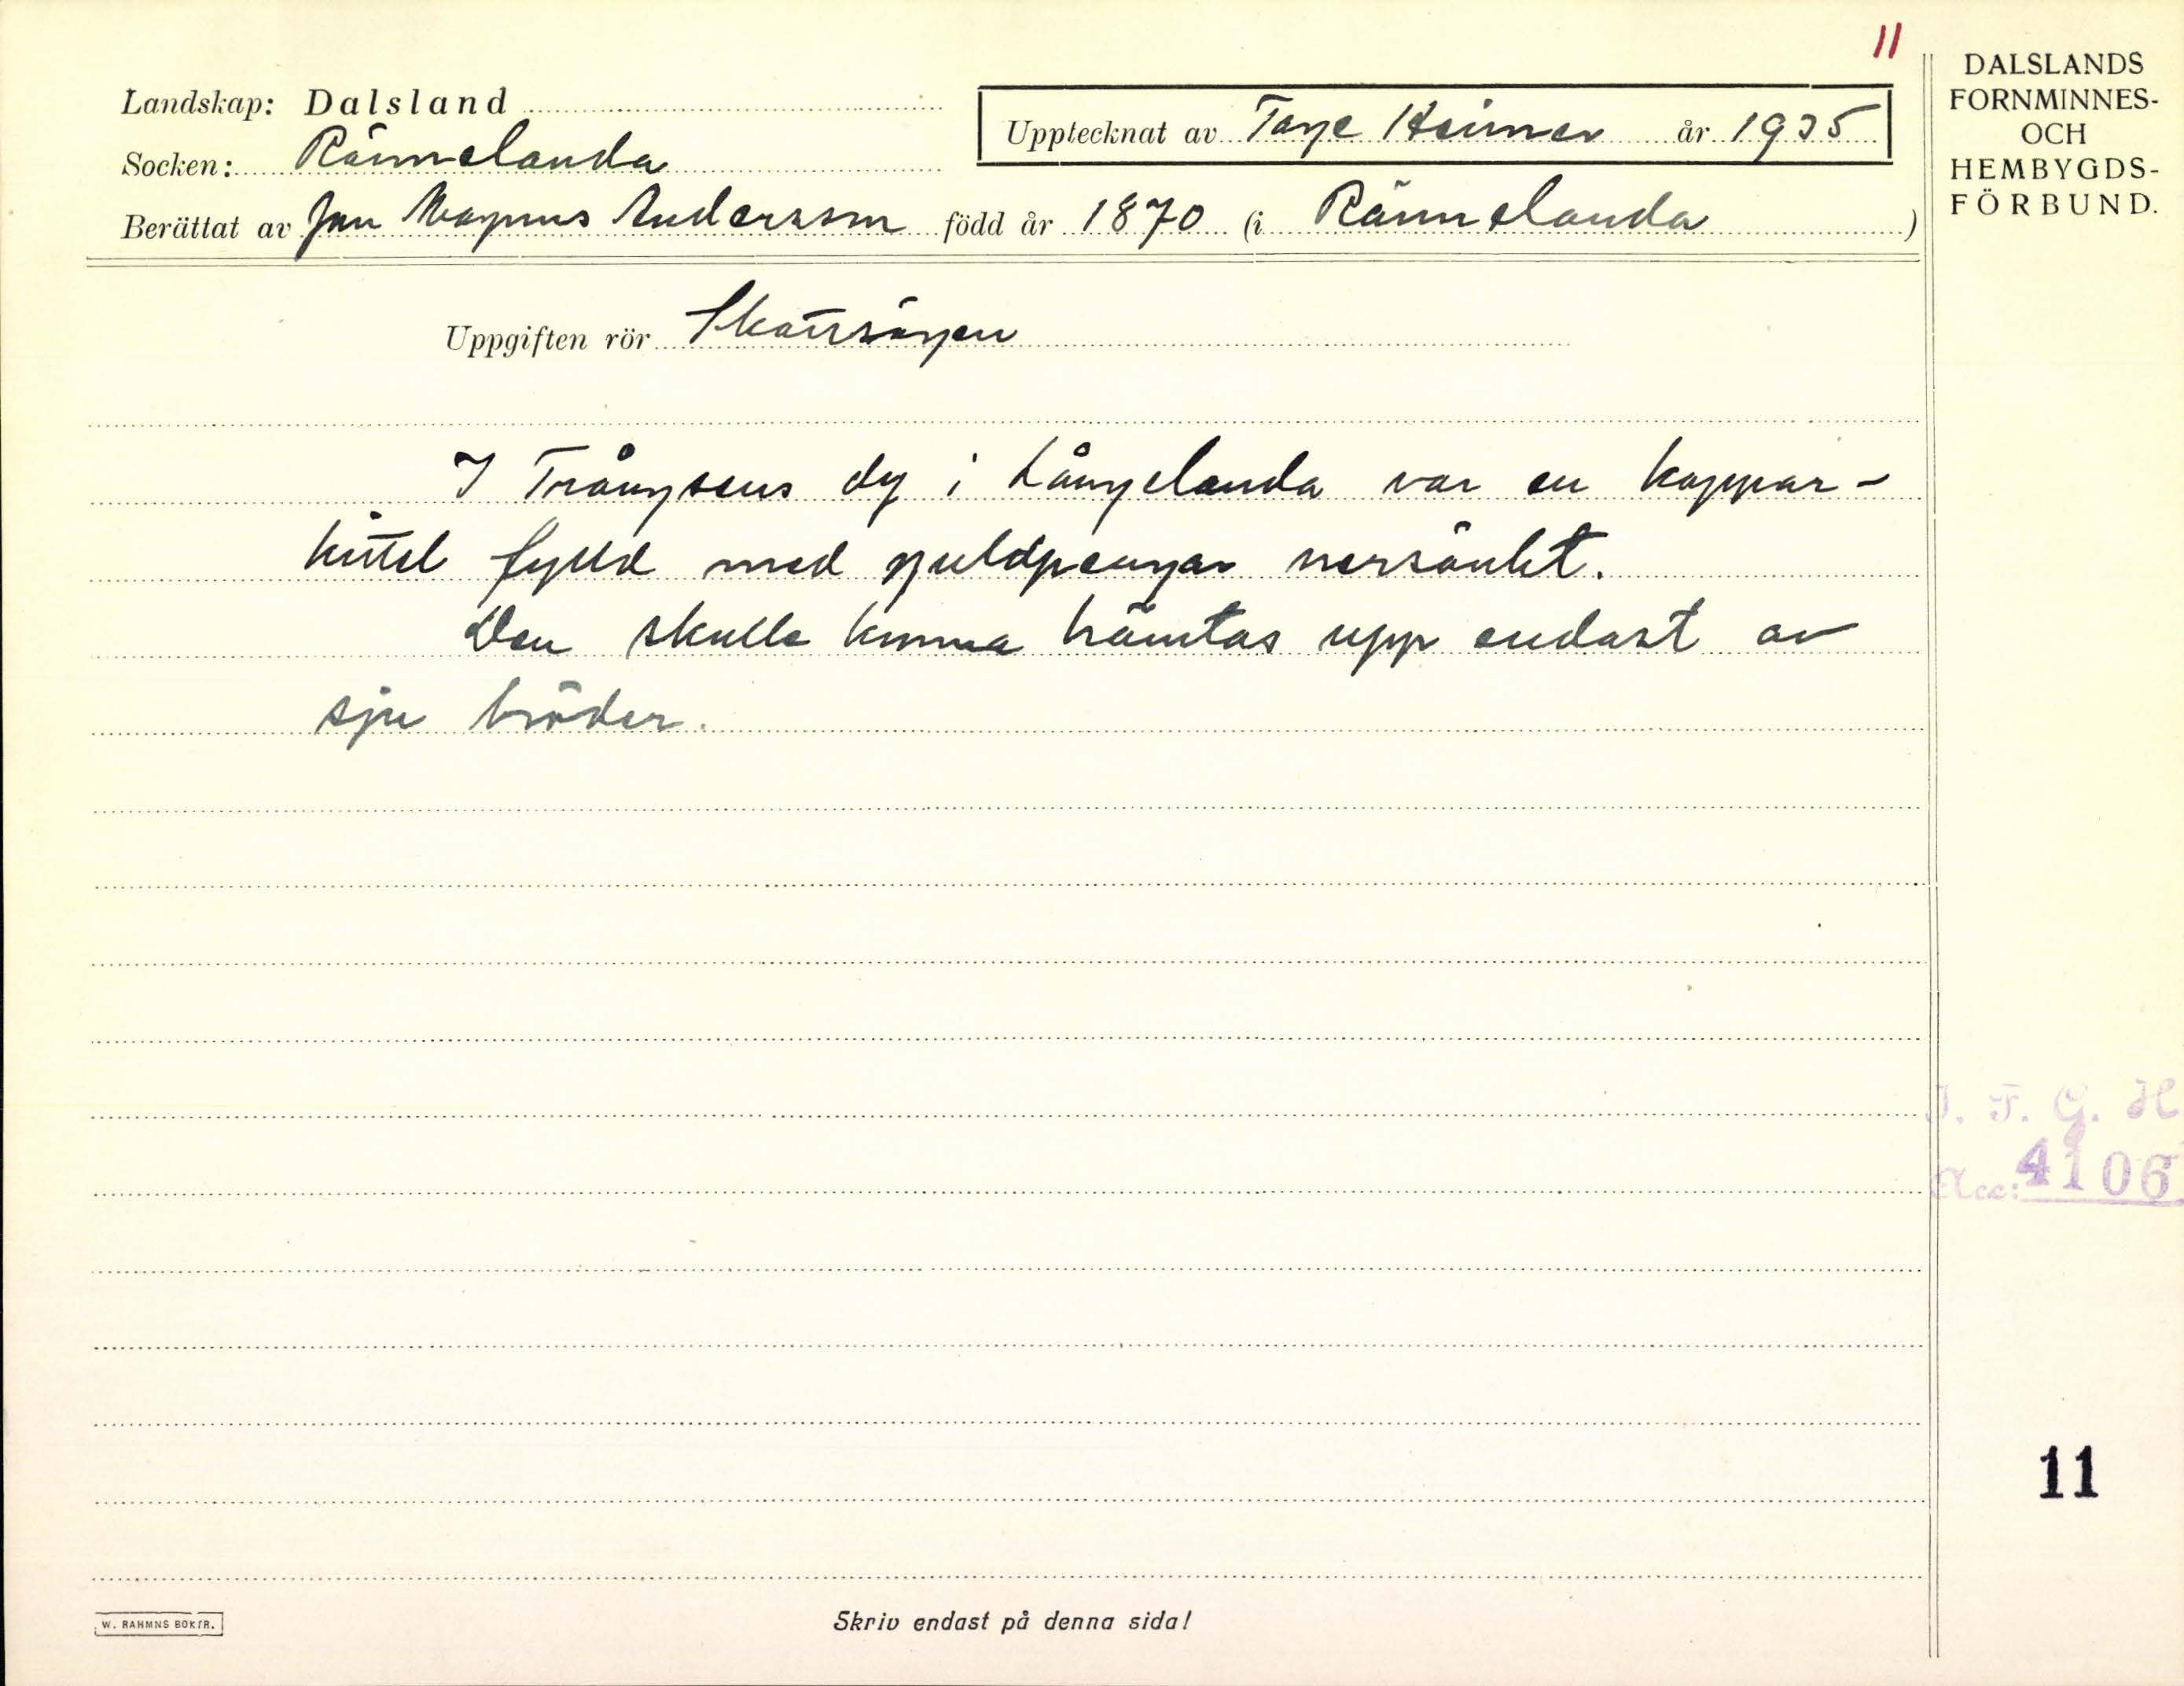 11
DALSLANDS
FORNMINNES-
OCH
HEMBYGDS-
FÖRBUND.
Landskap: Dalsland
Upptecknat av Tage Heimer år 1935
Socken: Rännelanda
Berättat av Jan Magnus Andersson född år 1870 (i Rännelanda)
Uppgiften rör Skattsägen
I Trångsens dy i Långelanda var en koppar-
kittel fylld med guldpengar nersänkt.
Den skulle kunna hämtas upp endast av
sju bröder.
I. F. G. H
Acc: 4106
11
W. RAHMNS BOKTR.
Skriv endast på denna sida!